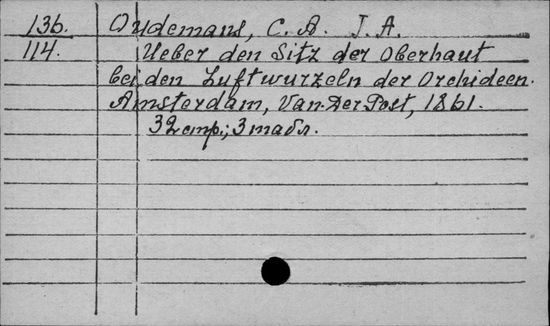 136. Oudemans, C. A. J. A.
114. Ueber den Sitz der Oberhaut
bei den Luftwurzeln der Orchideen.
Amsterdam, Van.Der Post, 1861.
32 стр.; 3 табл.